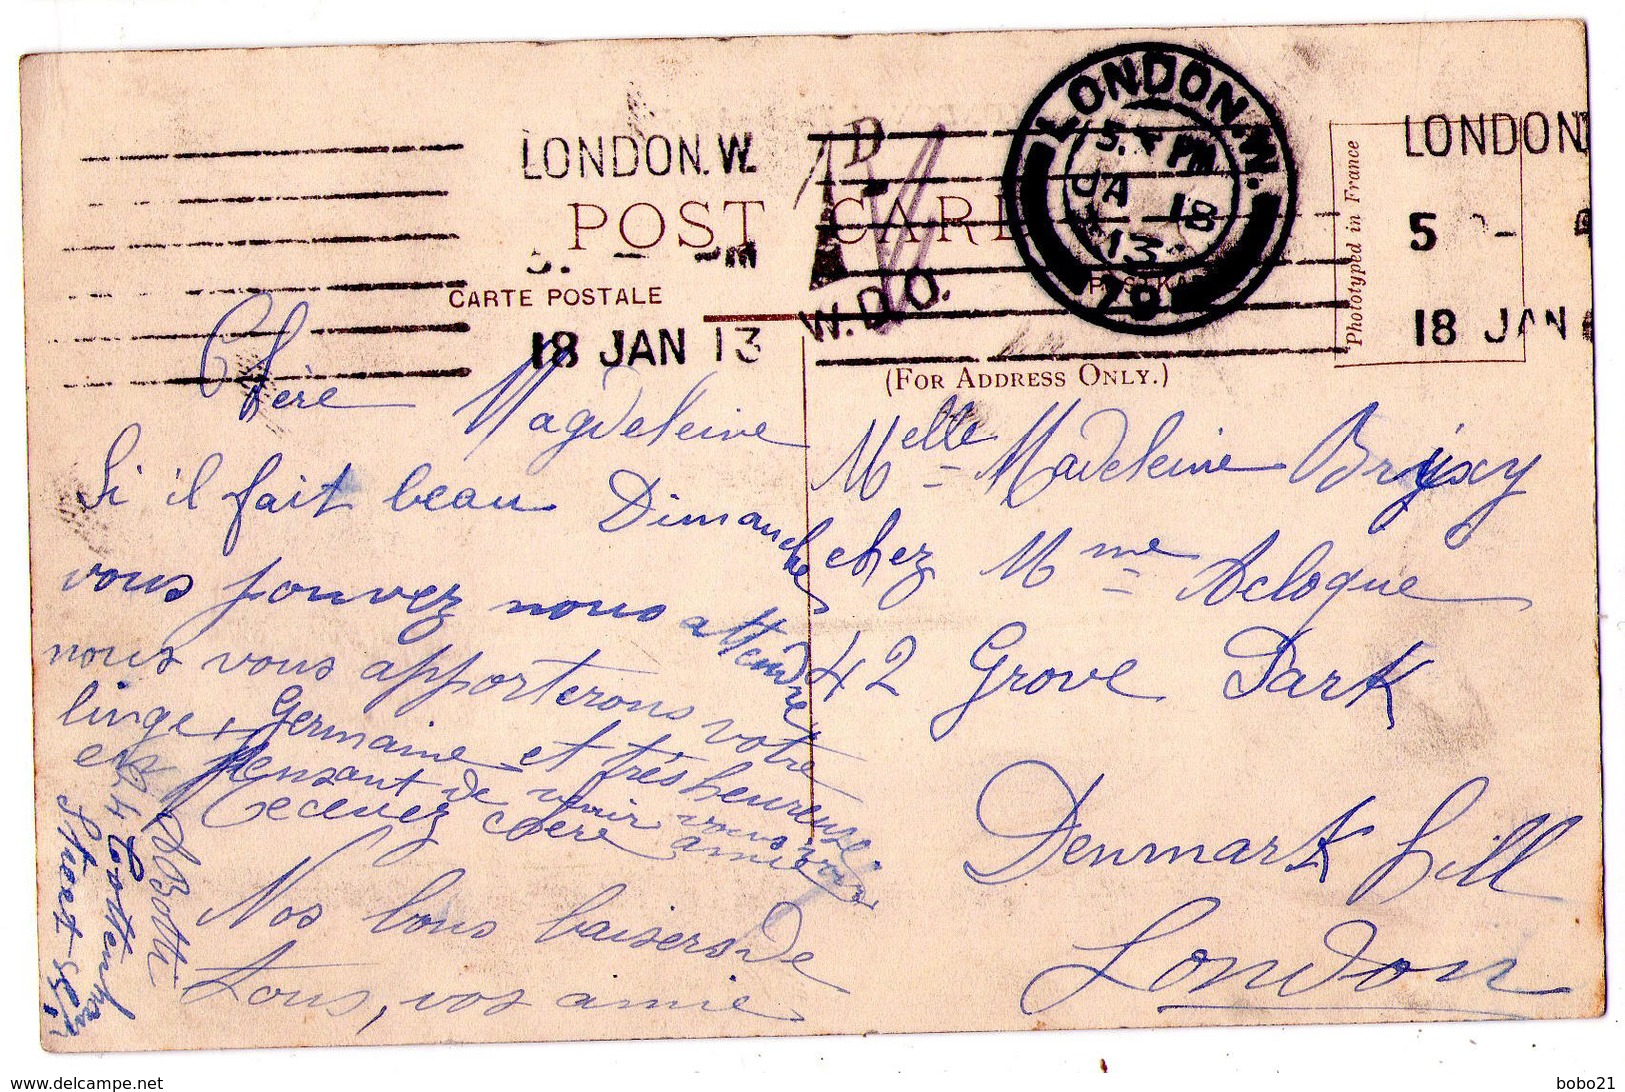 LONDON. W.
LONDON. W.
5. PM
JA 18
13
79
LONDON
5
18 JAN
POST CARD
CARTE POSTALE
POSTKA
18 JAN 13
W.D.O.
(FOR ADDRESS ONLY.)
Phototyped in France
Chère Magdeleine
Si il fait beau Dimanche
vous pouvez nous attendre
nous vous apporterons votre
linge, Germaine et très heureuse
en pensant de venir vous voir
recevez chère amie
Nos bons baisers de
tous, vos amie
Botti
24 Tottenham
Street
Melle Madeleine Bryxy
chez Mme Aclogue
42 Grove Park
Denmark hill
London
delcampe.net
bobo21